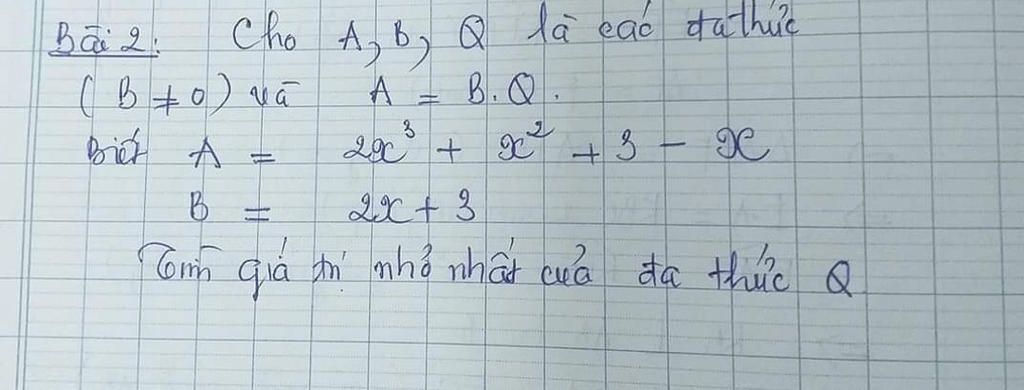 Bài 2: Cho A, B, Q là các đa thức
(B ≠ 0) và A = B.Q.
Biết A = 2x³ + x² + 3 - x
B = 2x + 3
Tính giá trị nhỏ nhất của đa thức Q